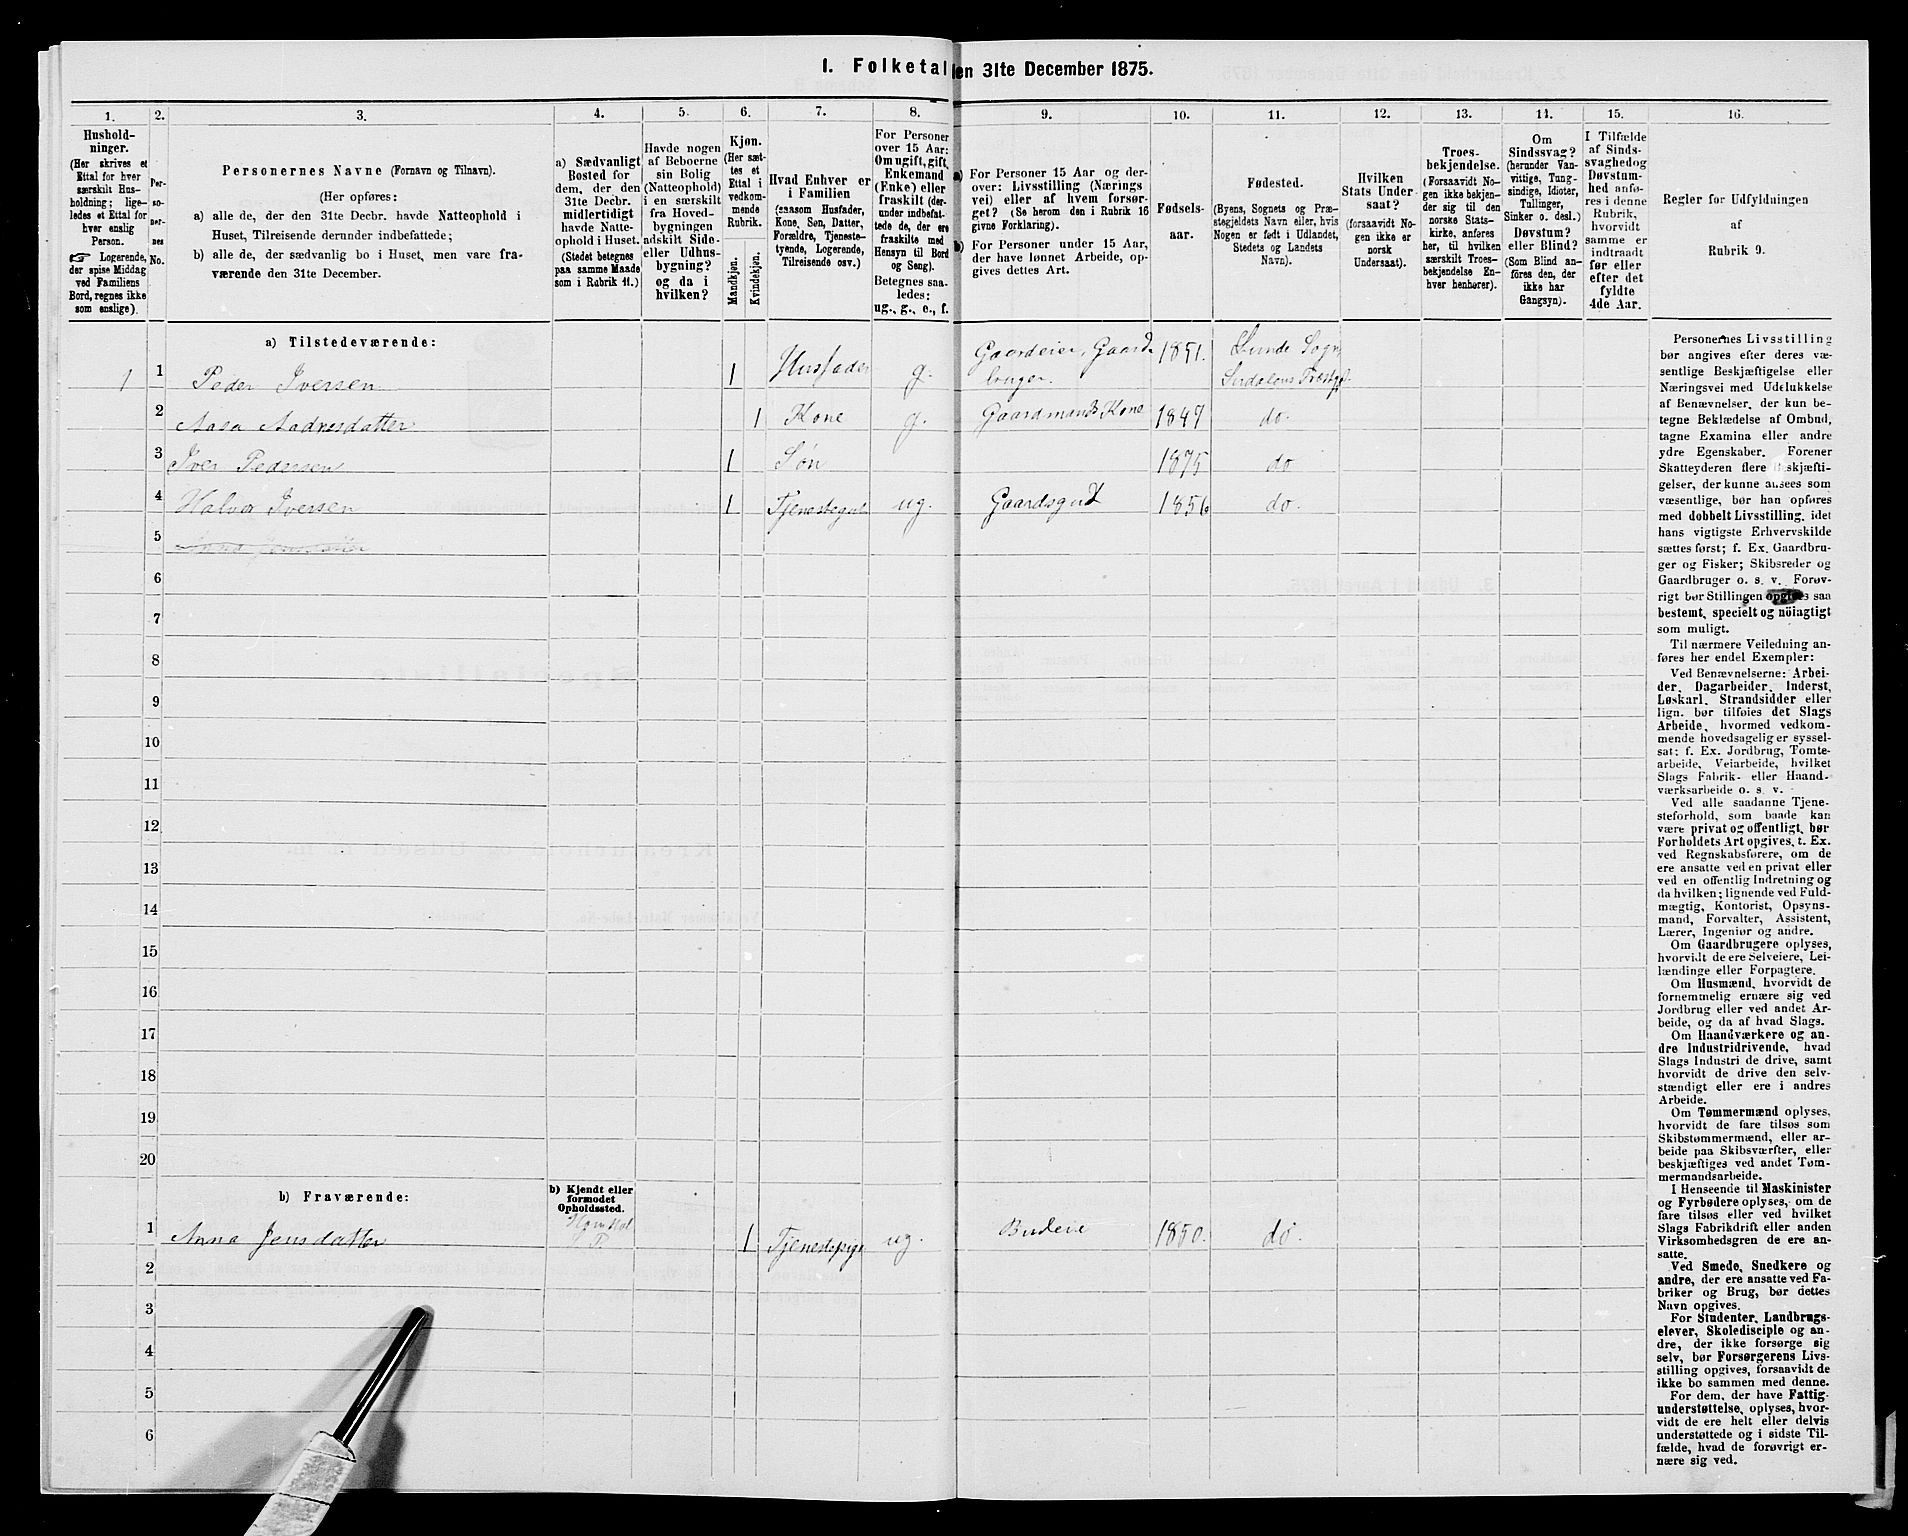 1. Folketal den 31te December 1875.
1.
Hushold-
ninger.
(Her skrives et
Ettal for hver
særskilt Hus-
holdning; lige-
ledes et Ettal for
hver enslig
Person.
☞ Logerende,
der spise Middag
ved Familiens
Bord, regnes ikke
som enslige).
2.
Per-
so-
ner-
nes
No.
3.
Personernes Navne (Fornavn og Tilnavn).
(Her opføres:
a) alle de, der den 31te Decbr. havde Natteophold i
Huset, Tilreisende derunder indbefattede;
b) alle de, der sædvanlig bo i Huset, men vare fra-
værende den 31te December.
4.
a) Sædvanligt
Bosted for
dem, der den
31te Decbr.
midlertidigt
havde Natte-
ophold i Huset.
(Stedet betegnes
paa samme Maade
som i Rubrik 11.)
5.
Havde nogen
af Beboerne
sin Bolig
(Natteophold)
i en særskilt
fra Hoved-
bygningen
adskilt Side-
eller Udhus-
bygning?
og da i
hvilken?
6.
Kjøn.
(Her sæt-
tes et
Ettal i
vedkom-
mende
Rubrik.
Mandkjøn.
Kvindekjøn.
7.
Hvad Enhver er
i Familien
(saasom Husfader,
Kone, Søn, Datter,
Forældre, Tjeneste-
tyende, Logerende,
Tilreisende osv.)
8.
For Personer
over 15 Aar:
Om ugift, gift,
Enkemand
(Enke) eller
fraskilt (der-
under indbefat-
tede de, der ere
fraskilte med
Hensyn til Bord
og Seng).
Betegnes saa-
ledes:
ug., g., e., f.
9.
a) For Personer 15 Aar og der-
over: Livsstilling (Nærings-
vei) eller af hvem forsør-
get? (Se herom den i Rubrik 16
givne Forklaring).
b) For Personer under 15 Aar,
der have lønnet Arbeide, op-
gives dettes Art.
10.
Fødsels-
aar.
11.
Fødested.
(Byens, Sognets og Præ-
stegjeldets Navn eller, hvis
Nogen er født i Udlandet,
Stedets og Landets
Navn).
12.
Hvilken
Stats Under-
saat?
(forsaavidt No-
gen ikke er
norsk
Undersaat).
13.
Troes-
bekjendelse.
(Forsaavidt No-
gen ikke bekjen-
der sig til den
norske Stats-
kirke, anføres
her, til hvilken
særskilt Troes-
bekjendelse En-
hver henhører).
14.
Om
Sindssvag?
(herunder Van-
vittige, Tung-
sindige, Idioter,
Tullinger,
Sinker o. desl.)
Døvstum?
eller Blind?
(Som Blind an-
føres den, der
ikke har
Gangsyn).
15.
I Tilfælde
af Sinds-
svaghed og
Døvstum-
hed anfø-
res i denne
Rubrik,
hvorvidt
samme er
indtraadt
før eller
efter det
fyldte
4de Aar.
16.
Regler for Udfyldningen
af
Rubrik 9.
a) Tilstedeværende:
1 1 Peder Iversen 1 Husfader g. Gaardeier, Gaard-
bruger. 1851. Lunde Sogn,
Sirdalens Præstgj.
2 Aasa Aadnesdatter 1 Kone g. Gaardmands Kone 1847 do.
3 Iver Pedersen 1 Søn 1875 do
4 Halvor Iversen 1 Tjenestegut ug. Gaardsgut 1856 do.
5 Anna Jensdatter
6
7
8
9
10
11
12
13
14
15
16
17
18
19
20
b) Fraværende:
b) Kjendt eller
formodet
Opholdssted.
1 Anna Jensdatter 1 Tjenestepige ug. Budeie 1850. do.
2
3
4
5
6
Personernes Livsstilling
bør angives efter deres væ-
sentlige Beskjæftigelse eller
Næringsvei med Udelukkelse
af Benævnelser, der kun be-
tegne Beklædelse af Ombud,
tagne Examina eller andre
ydre Egenskaber. Forener
Skatteyderen flere Beskjæfti-
gelser, der kunne ansees som
væsentlige, bør han opføres
med dobbelt Livsstilling, idet
hans vigtigste Erhvervskilde
sættes først; f. Ex. Gaardbru-
ger og Fisker; Skibsreder og
Gaardbruger o. s. v. Forøv-
rigt bør Stillingen opgives saa
bestemt, specielt og nöiagtigt
som muligt.
Til nærmere Veiledning an-
føres her endel Exempler:
Ved Benævnelserne: Arbei-
der, Dagarbeider, Inderst,
Løskarl, Strandsidder eller
lign. bør tilføies det Slags
Arbeide, hvormed vedkom-
mende hovedsagelig er syssel-
sat; f. Ex. Jordbrug, Tomte-
arbeide, Veiarbeide, hvilket
Slags Fabrik- eller Haand-
værksarbeide o. s. v.
Ved alle saadanne Tjene-
steforhold, som baade kan
være privat og offentligt, bør
Forholdets Art opgives, t. Ex.
ved Regnskabsførere, om de
ere ansatte ved en privat eller
ved en offentlig Indretning og
da hvilken; lignende ved Fuld-
mægtig, Kontorist, Opsyns-
mand, Forvalter, Assistent,
Lærer, Ingeniør og andre.
Om Gaardbrugere oplyses,
hvorvidt de ere Selveiere, Lei-
lændinge eller Forpagtere.
Om Husmænd, hvorvidt de
fornemmelig ernære sig ved
Jordbrug eller ved andet Ar-
beide, og da af hvad Slags.
Om Haandværkere og an-
dre Industridrivende, hvad
Slags Industri de drive, samt
hvorvidt de drive den selv-
stændigt eller ere i andres
Arbeide.
Om Tømmermænd oplyses,
hvorvidt de fare tilsøs som
Skibstømmermænd, eller ar-
beide paa Skibsværfter, eller
beskjæftiges ved andet Tøm-
mermandsarbeide.
I Henseende til Maskinister
og Fyrbødere oplyses, om de
fare tilsøs eller ved hvilket
Slags Fabrikdrift eller anden
Virksomhedsgren de ere an-
satte.
Ved Smede, Snedkere og
andre, der ere ansatte ved Fa-
briker og Brug, bør dettes
Navn opgives.
For Studenter, Landbrugs-
elever, Skoledisciple og an-
dre, der ikke forsørge sig
selv, bør Forsørgerens Livs-
stilling opgives, forsaavidt de
ikke bo sammen med denne.
For dem, der have Fattig-
understøttelse, oplyses, hvor-
vidt de ere helt eller delvis
understøttede og i sidste Til-
fælde, hvad de forøvrigt er-
nære sig ved.